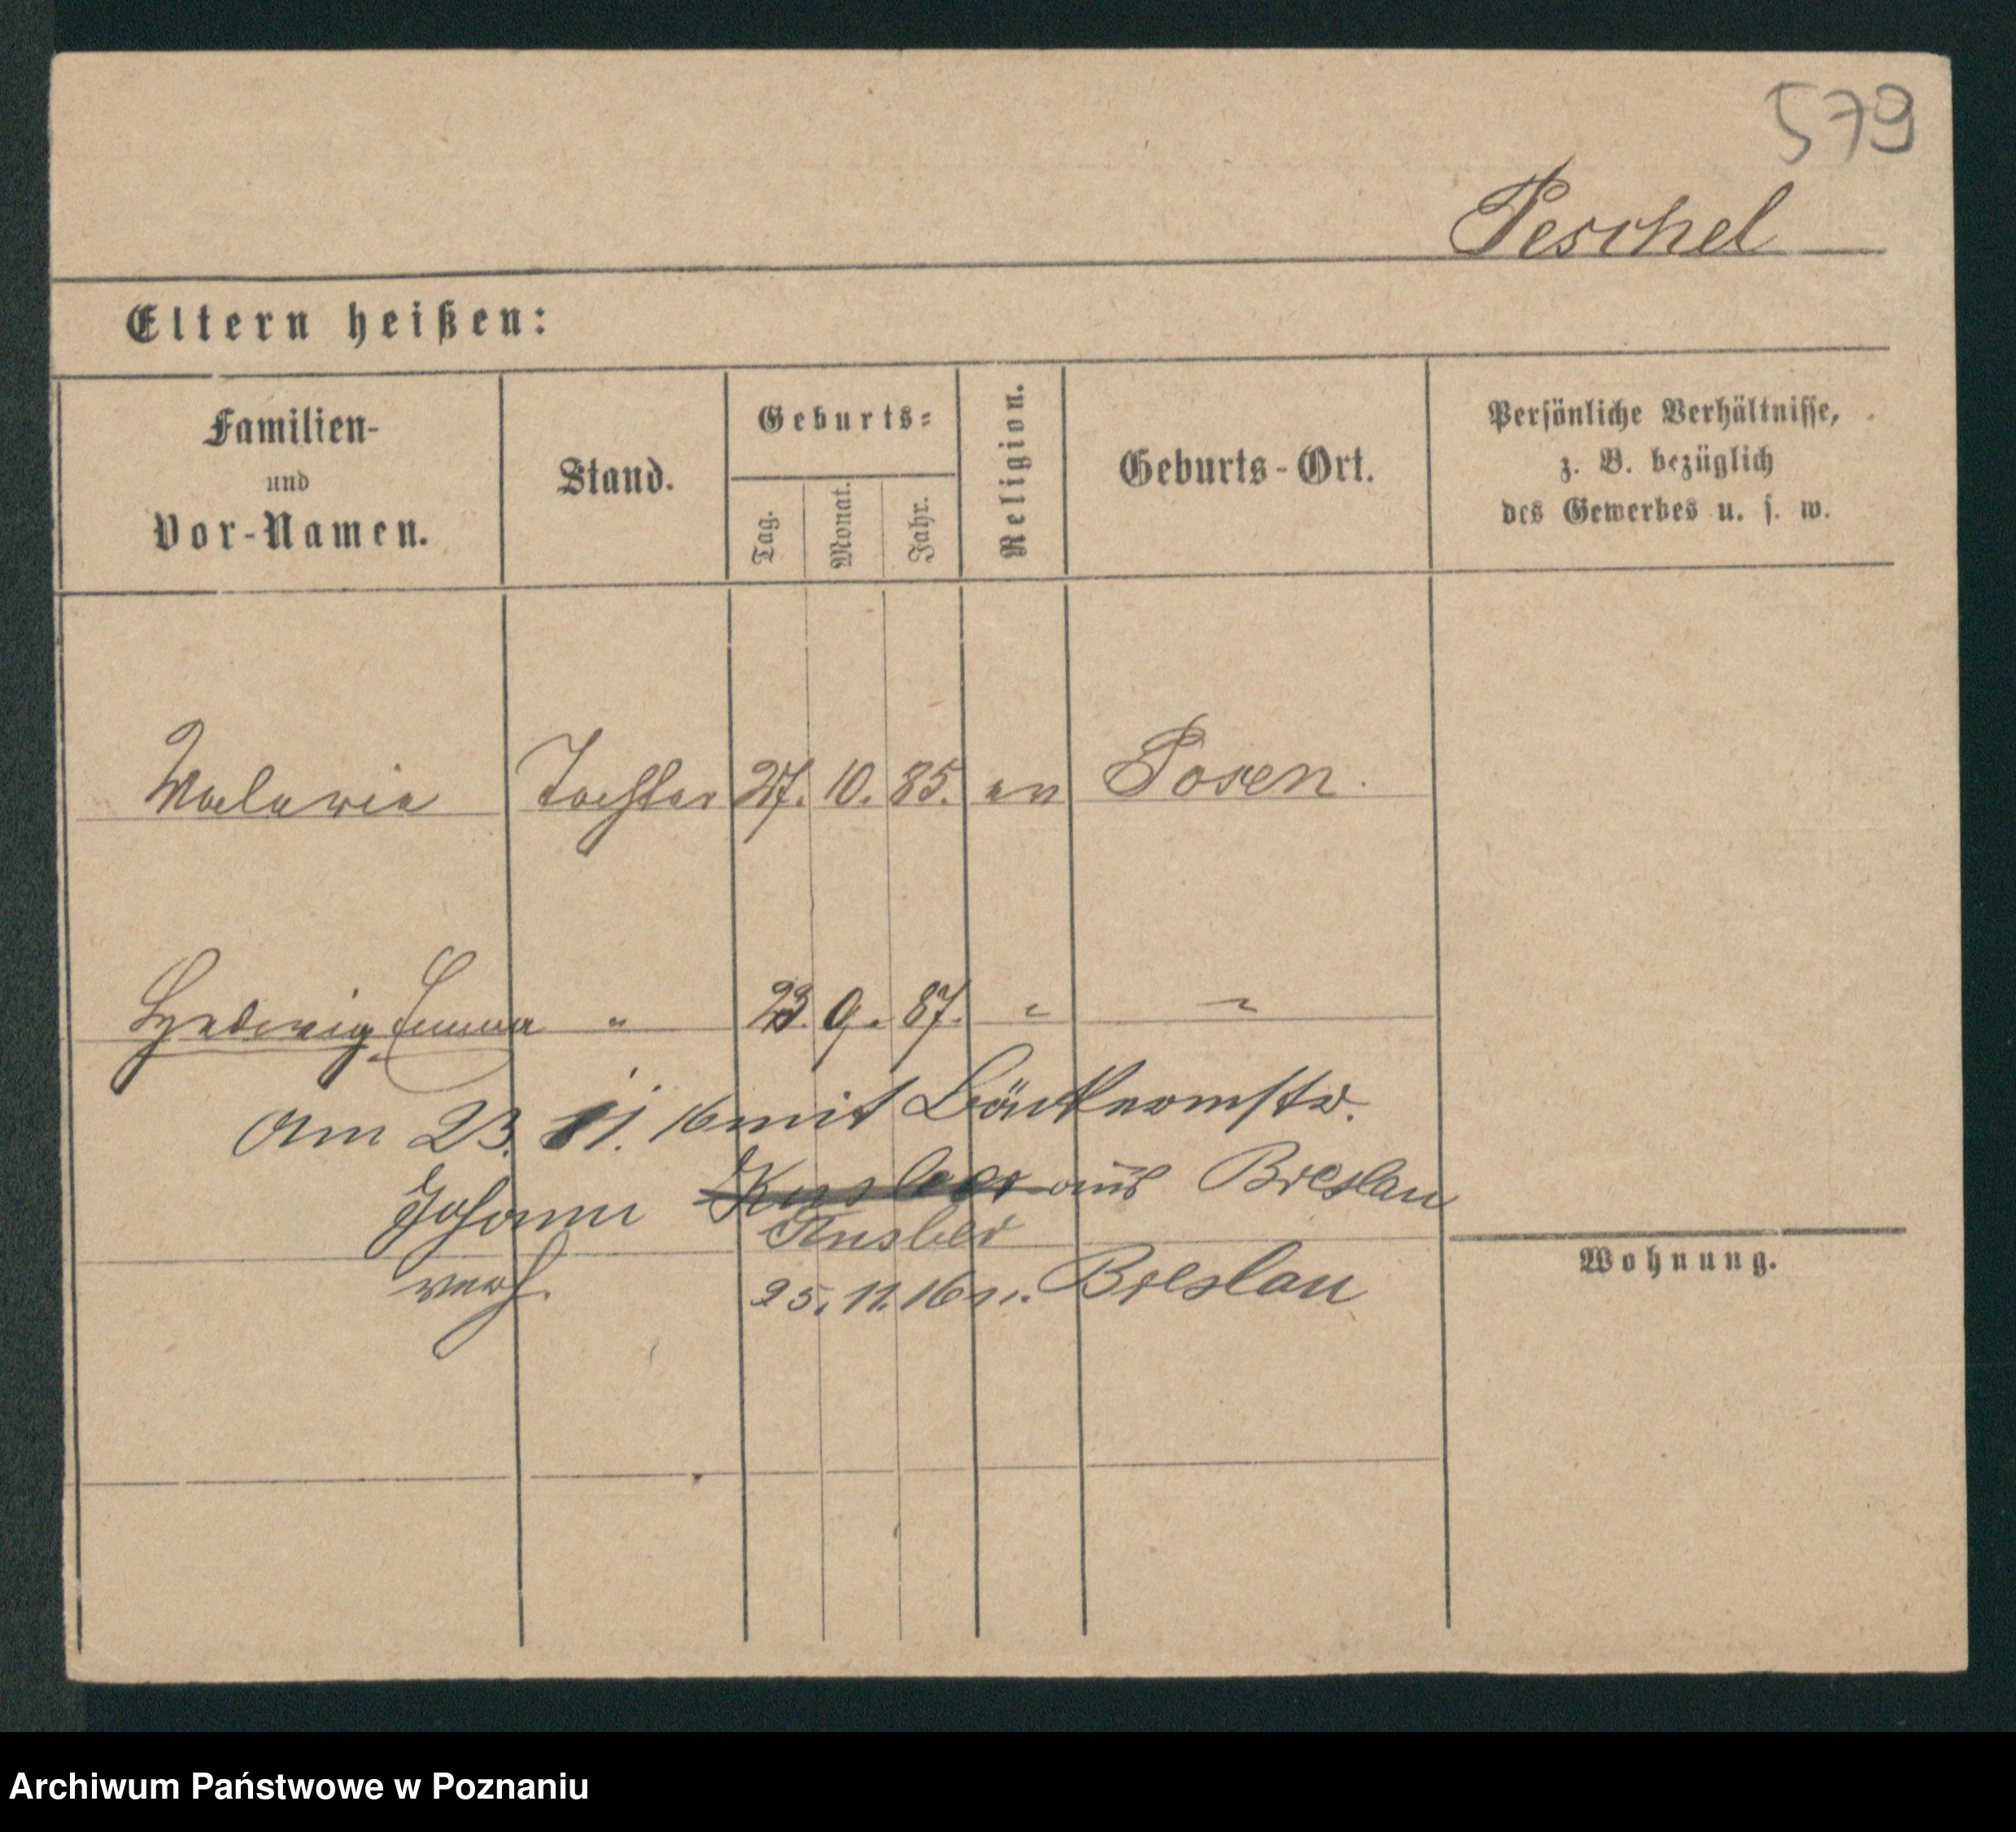 579
Peschel
Eltern heißen:
Familien-
und
Vor-Namen.
Stand.
Geburts-
Tag.
Monat.
Jahr.
Religion.
Geburts-Ort.
Persönliche Verhältnisse,
z. B. bezüglich
des Gewerbes u. s. w.
Tochter 27. 10. 85. ev Posen.
Hedwig Emma " 23. 9. 87. " "
Am 23. 11. 16 mit Bäckermstr.
Johann aus Breslau
verh. 25. 11. 16 n. Breslau
Wohnung.
Archiwum Państwowe w Poznaniu